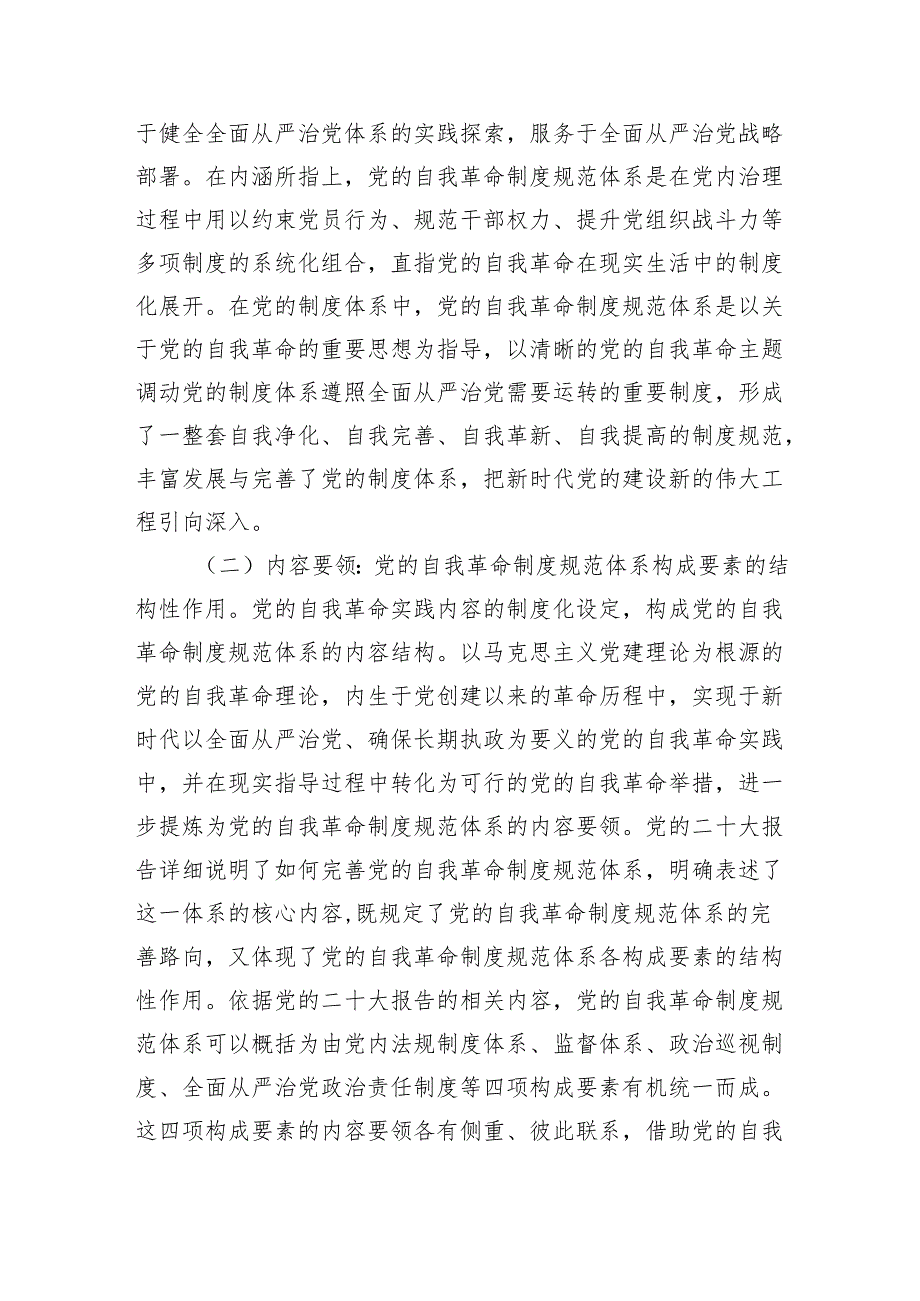 于健全全面从严治党体系的实践探索，服务于全面从严治党战略
部署。在内涵所指上，党的自我革命制度规范体系是在党内治理
过程中用以约束党员行为、规范干部权力、提升党组织战斗力等
多项制度的系统化组合，直指党的自我革命在现实生活中的制度
化展开。在党的制度体系中，党的自我革命制度规范体系是以关
于党的自我革命的重要思想为指导，以清晰的党的自我革命主题
调动党的制度体系遵照全面从严治党需要运转的重要制度，形成
了一整套自我净化、自我完善、自我革新、自我提高的制度规范，
丰富发展与完善了党的制度体系，把新时代党的建设新的伟大工
程引向深入。
（二）内容要领：党的自我革命制度规范体系构成要素的结
构性作用。党的自我革命实践内容的制度化设定，构成党的自我
革命制度规范体系的内容结构。以马克思主义党建理论为根源的
党的自我革命理论，内生于党创建以来的革命历程中，实现于新
时代以全面从严治党、确保长期执政为要义的党的自我革命实践
中，并在现实指导过程中转化为可行的党的自我革命举措，进一
步提炼为党的自我革命制度规范体系的内容要领。党的二十大报
告详细说明了如何完善党的自我革命制度规范体系，明确表述了
这一体系的核心内容,既规定了党的自我革命制度规范体系的完
善路向，又体现了党的自我革命制度规范体系各构成要素的结构
性作用。依据党的二十大报告的相关内容，党的自我革命制度规
范体系可以概括为由党内法规制度体系、监督体系、政治巡视制
度、全面从严治党政治责任制度等四项构成要素有机统一而成。
这四项构成要素的内容要领各有侧重、彼此联系，借助党的自我